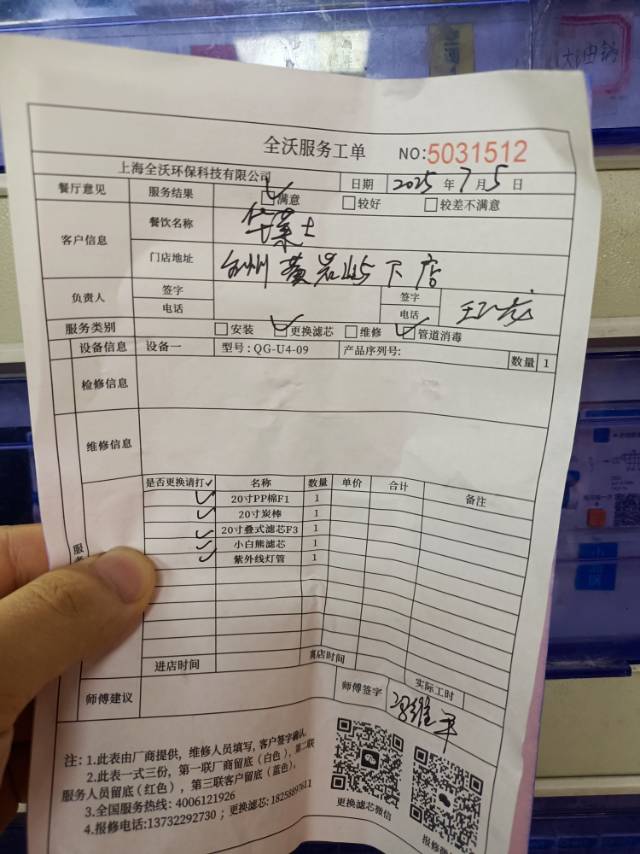 全沃服务工单 NO:5031512
上海全沃环保科技有限公司 日期 2025 年 7 月 5 日
餐厅意见 服务结果 ☑满意 □较好 □较差不满意
客户信息 餐饮名称 华莱士
门店地址 台州黄岩屿下店
负责人 签字 签字
电话 电话
服务类别 □安装 ☑更换滤芯 □维修 ☑管道消毒
设备信息 设备一 型号:QG-U4-09 产品序列号: 数量 1
检修信息
维修信息
是否更换请打✓ 名称 数量 单价 合计 备注
✓ 20寸PP棉F1 1
✓ 20寸炭棒 1
✓ 20寸叠式滤芯F3 1
✓ 小白熊滤芯 1
✓ 紫外线灯管 1
服
进店时间 离店时间 实际工时
师傅建议 师傅签字 冯维平
注:1.此表由厂商提供,维修人员填写,客户签字确认.
2.此表一式三份,第一联厂商留底(白色),第二联
服务人员留底(红色),第三联客户留底(蓝色),
3.全国服务热线:4006121926
4.报修电话:13732292730;更换滤芯:18258897611
更换滤芯微信
报修微